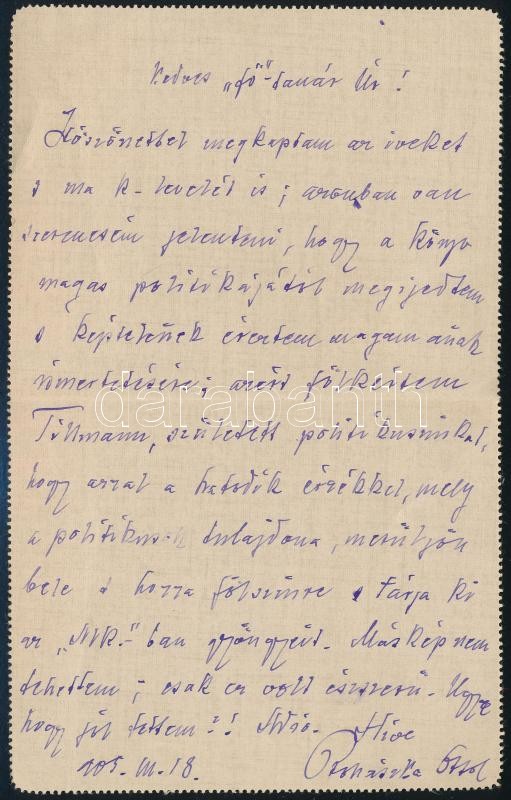 Kedves „fő"-tanár Úr!
Köszönettel megkaptam az íveket
s ma k- levelét is; azonban van
szerencsém jelenteni, hogy a könyv
magas politikájától megijedtem
s képtelennek éreztem magam annak
ismertetésére; azért fölkértem
Tillmann, született politikusunkat,
hogy azzal a hatodik érzékkel, mely
a politikusok tulajdona, merüljön
bele s hozza fölszínre s tárja ki
az „MK.-"ban gyöngyeit. Máskép nem
tehettem; csak ez volt észszerű. Ugye
hogy jól tettem?! Híve
905. III. 18. Prohászka Ottok
darabanth